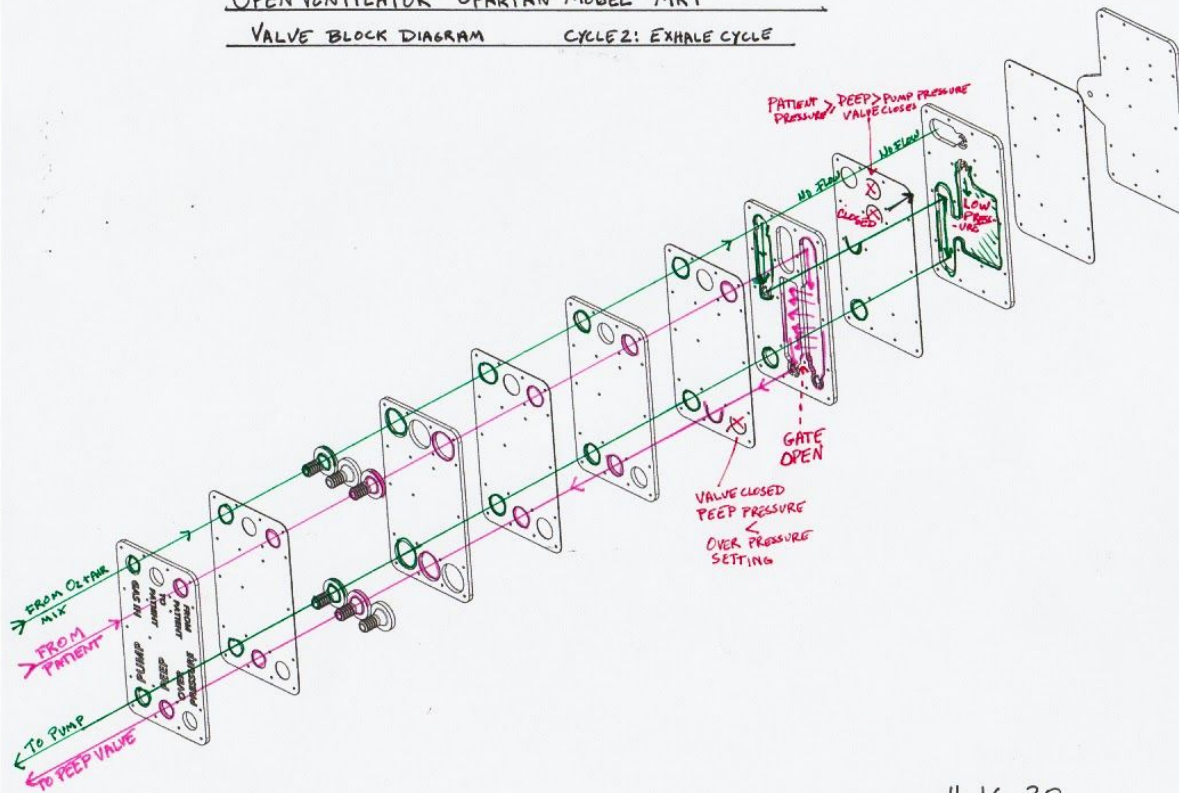 OPEN VENTILATOR SPARTAN MODEL MK1
VALVE BLOCK DIAGRAM CYCLE 2: EXHALE CYCLE
PATIENT > PEEP > PUMP PRESSURE
PRESSURE VALVE CLOSED
NO FLOW
NO FLOW
CLOSED
LOW
PRESS-
-URE
GATE
OPEN
VALVE CLOSED
PEEP PRESSURE
<
OVER PRESSURE
SETTING
FROM O2+AIR
MIX
FROM
PATIENT
GAS IN
TO
PATIENT
FROM
PATIENT
PUMP
PEEP
OVER
PRESSURE
TO PUMP
TO PEEP VALVE